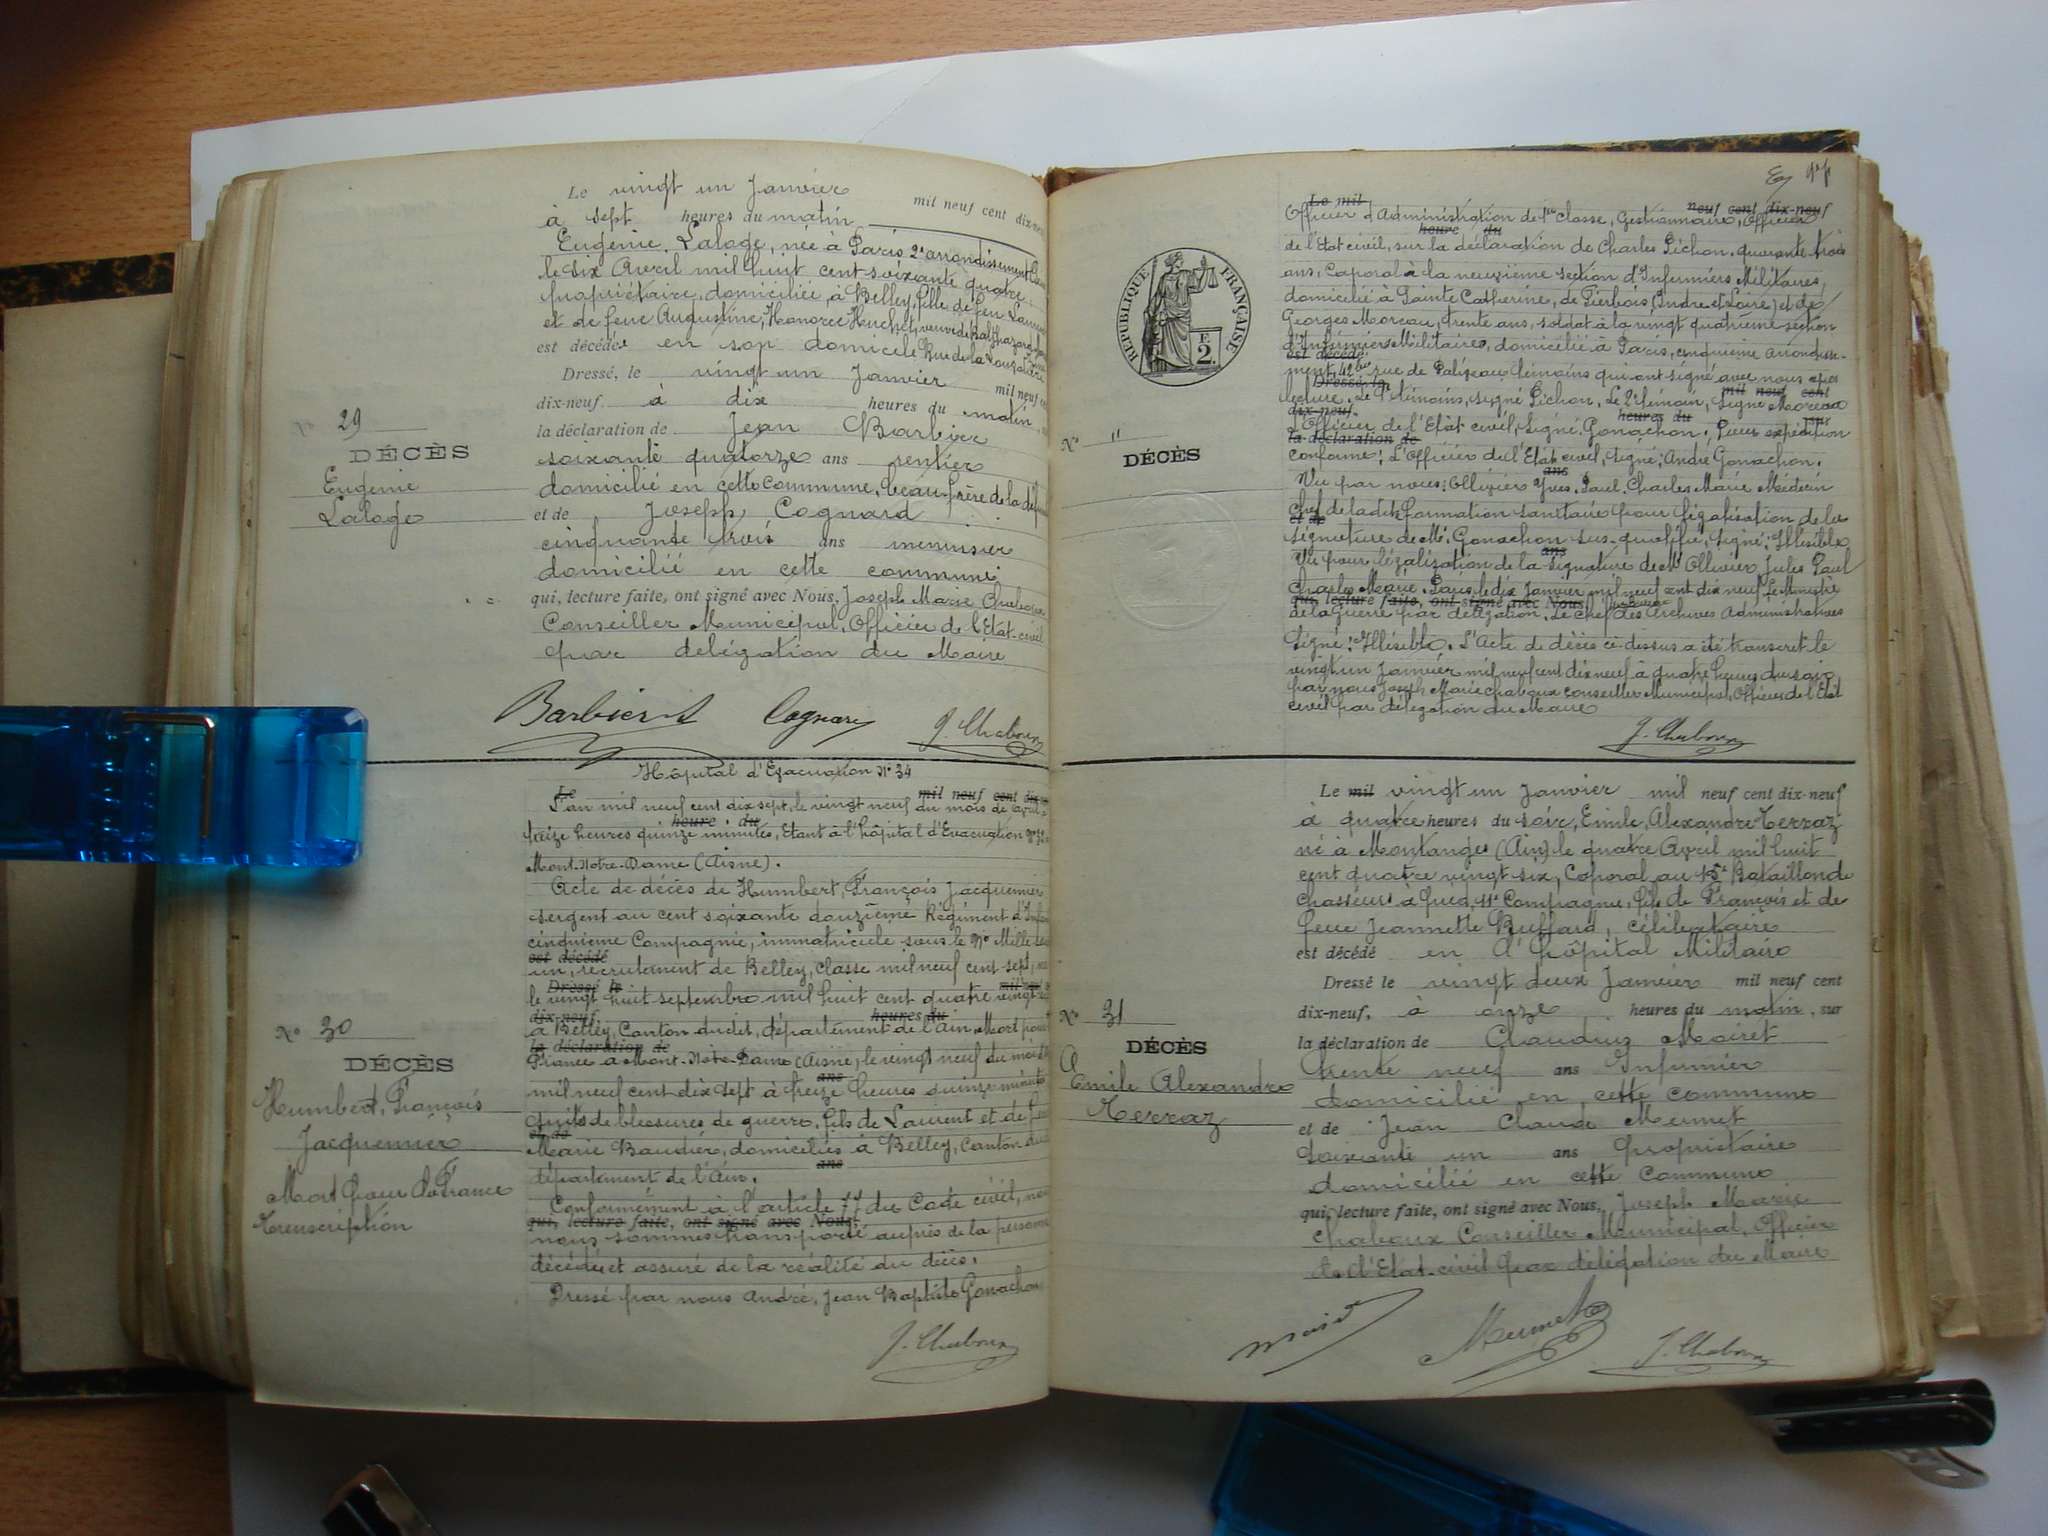 Le vingt un Janvier mil neuf cent dix-neuf
à sept heures du matin
Eugénie Laloge, née à Paris 2e arrondissement
le six Avril mil huit cent soixante quatre
propriétaire, domiciliée à Belley, fille de feu
et de feue Augustine, Honorée Huchet, veuve de Balthazard
est décédée en son domicile Rue de la
Dressé, le vingt un Janvier mil neuf cent
dix-neuf à dix heures du matin
la déclaration de Jean Barbier
soixante quatorze ans rentier
domicilié en cette commune, beau-frère de la
et de Joseph Cognard
cinquante trois ans menuisier
domicilié en cette commune
qui, lecture faite, ont signé avec Nous, Joseph Marie
Conseiller Municipal, Officier de l'Etat-civil
par délégation du Maire
N° 29
DÉCÈS
Eugénie
Laloge
Barbier Cognard J. Chaboux
Hôpital d'Evacuation N° 34
Le mil neuf cent
L'an mil neuf cent dix sept, le vingt neuf du mois de avril à
heure du
treize heures quinze minutes, Etant à l'hôpital d'Evacuation
Mont-Notre-Dame (Aisne).
Acte de décès de Humbert, François Jacquemier
sergent au cent soixante douzième Régiment
cinquième Compagnie, immatriculé sous le N° Mille
est décédé
un, recrutement de Belley, classe mil neuf cent sept,
Dressé le
le vingt huit septembre mil huit cent quatre vingt
dix-neuf heures du
à Belley, Canton dudit, département de l'Ain Mort pour
la déclaration de
France à Mont-Notre-Dame (Aisne) le vingt neuf du mois
ans
mil neuf cent dix sept à treize heures quinze minutes
suite de blessures de guerre, fils de Laurent et de
et de
Marie Baudier, domiciliés à Belley, Canton
ans
département de l'Ain.
Conformément à l'article 77 du Code civil,
qui, lecture faite, ont signé avec Nous,
nous sommes transporté auprès de la personne
décédée et assuré de la réalité du décès.
Dressé par nous André, Jean Baptiste Gonachon
N° 30
DÉCÈS
Humbert, François
Jacquemier
Mort pour la France
Transcription
J. Chaboux
RÉPUBLIQUE FRANÇAISE
F
2
N° "
DÉCÈS
Le mil neuf cent dix-neuf
Officier d'Administration de 1re classe, Gestionnaire, Officier
heure du
de l'Etat civil, sur la déclaration de Charles Pichon, quarante trois
ans, Caporal à la neuvième section d'Infirmiers Militaires,
domicilié à Sainte Catherine, de Fierbois (Indre et Loire) et de
Georges Moreau, trente ans, soldat à la vingt quatrième section
d'Infirmiers Militaires, domicilié à Paris, cinquième arrondisse-
est décédé
ment, 42bis rue de témoins qui ont signé avec nous après
Dressé, le mil neuf cent
lecture. Le 1r témoin, signé Pichon, Le 2e témoin, signé Moreau
dix-neuf. heures du sur
L'Officier de l'Etat civil, signé Gonachon. Pour expédition
la déclaration de
conforme: L'Officier de l'Etat civil, signé: André Gonachon.
ans
Vu par nous: Ollivier Yves. Paul. Charles Marie Médecin
Chef de ladite formation sanitaire pour légalisation de la
et de
signature de Mr Gonachon sus-qualifié, signé: Illisible
ans
Vu pour légalisation de la signature de Mr Ollivier Jules Paul
Charles Marie. Paris, le dix Janvier mil neuf cent dix neuf Le Ministre
qui, lecture faite, ont signé avec Nous
de la Guerre par délégation, Le Chef des Archives Administratives
Signé: Illisible. L'Acte de décès ci-dessus a été transcrit le
vingt un Janvier mil neuf cent dix neuf à quatre heures du soir
par nous Joseph Marie Chaboux Conseiller Municipal, Officier de l'Etat
civil par délégation du Maire
J. Chaboux
Le mil vingt un Janvier mil neuf cent dix-neuf
à quatre heures du soir, Emile, Alexandre Terraz
né à Montanges (Ain) le quatre Avril mil huit
cent quatre vingt six, Caporal au 15e Bataillon de
Chasseurs à Pied, 11e Compagnie, fils de François et de
feue Jeannette Buffard, célibataire
est décédé en l'hôpital Militaire
Dressé le vingt deux Janvier mil neuf cent
dix-neuf, à onze heures du matin, sur
la déclaration de Claudius Moiret
trente neuf ans Infirmier
domicilié en cette commune
et de Jean Claude Meunet
soixante un ans propriétaire
domicilié en cette Commune
qui, lecture faite, ont signé avec Nous, Joseph Marie
Chaboux Conseiller Municipal, Officier
de l'Etat-civil par délégation du Maire
N° 31
DÉCÈS
Emile Alexandre
Terraz
J. Chaboux